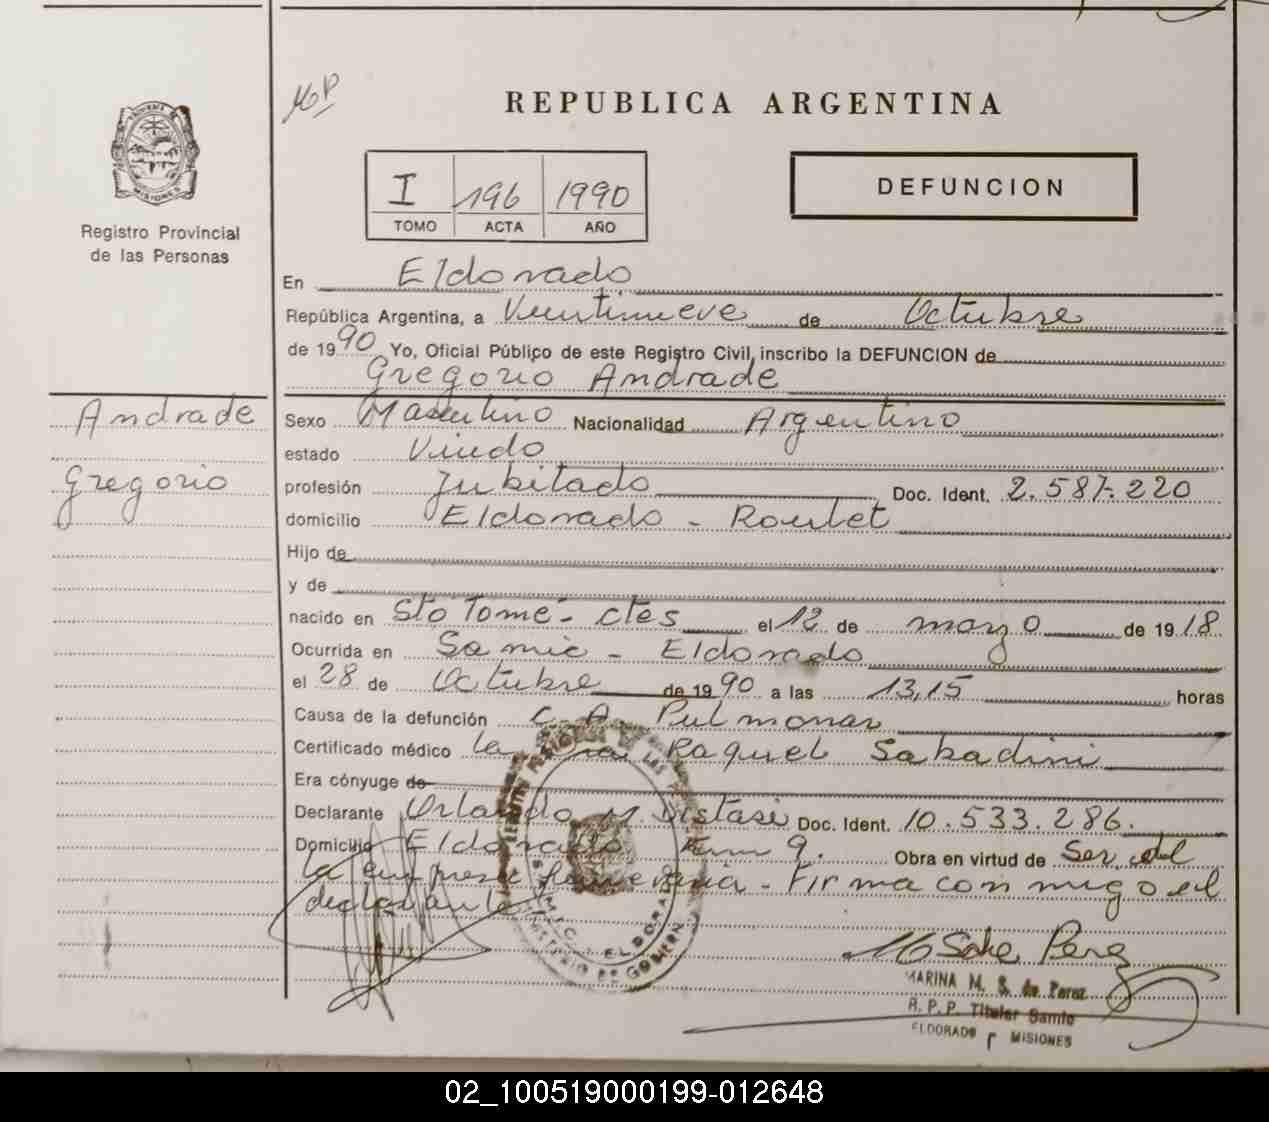 MP
REPUBLICA ARGENTINA
MISIONES
I 196 1990
TOMO ACTA AÑO
DEFUNCION
Registro Provincial
de las Personas
En Eldorado
República Argentina, a Veintinueve de Octubre
de 1990 Yo, Oficial Público de este Registro Civil, inscribo la DEFUNCION de
Gregorio Andrade
Andrade
Gregorio
Sexo Masculino Nacionalidad Argentino
estado Viudo
profesión Jubilado Doc. Ident. 2.587.220
domicilio Eldorado - Roulet
Hijo de
y de
nacido en Sto Tomé - Ctes el 12 de marzo de 1918
Ocurrida en Samic - Eldorado
el 28 de Octubre de 1990 a las 13,15 horas
Causa de la defunción C. A. Pulmonar
Certificado médico la Dra. Raquel Sabadini
Era cónyuge de
Declarante Orlando M. Distasi Doc. Ident. 10.533.286.
Domicilio Eldorado Km 9. Obra en virtud de Ser del
la empresa funeraria - Firma conmigo el
declarante
M S de Perez
MARINA M. S. de Perez
R. P. P. Titular Samic
ELDORADO MISIONES
ELDORADO
MINISTERIO DE GOBIERNO
02_100519000199-012648